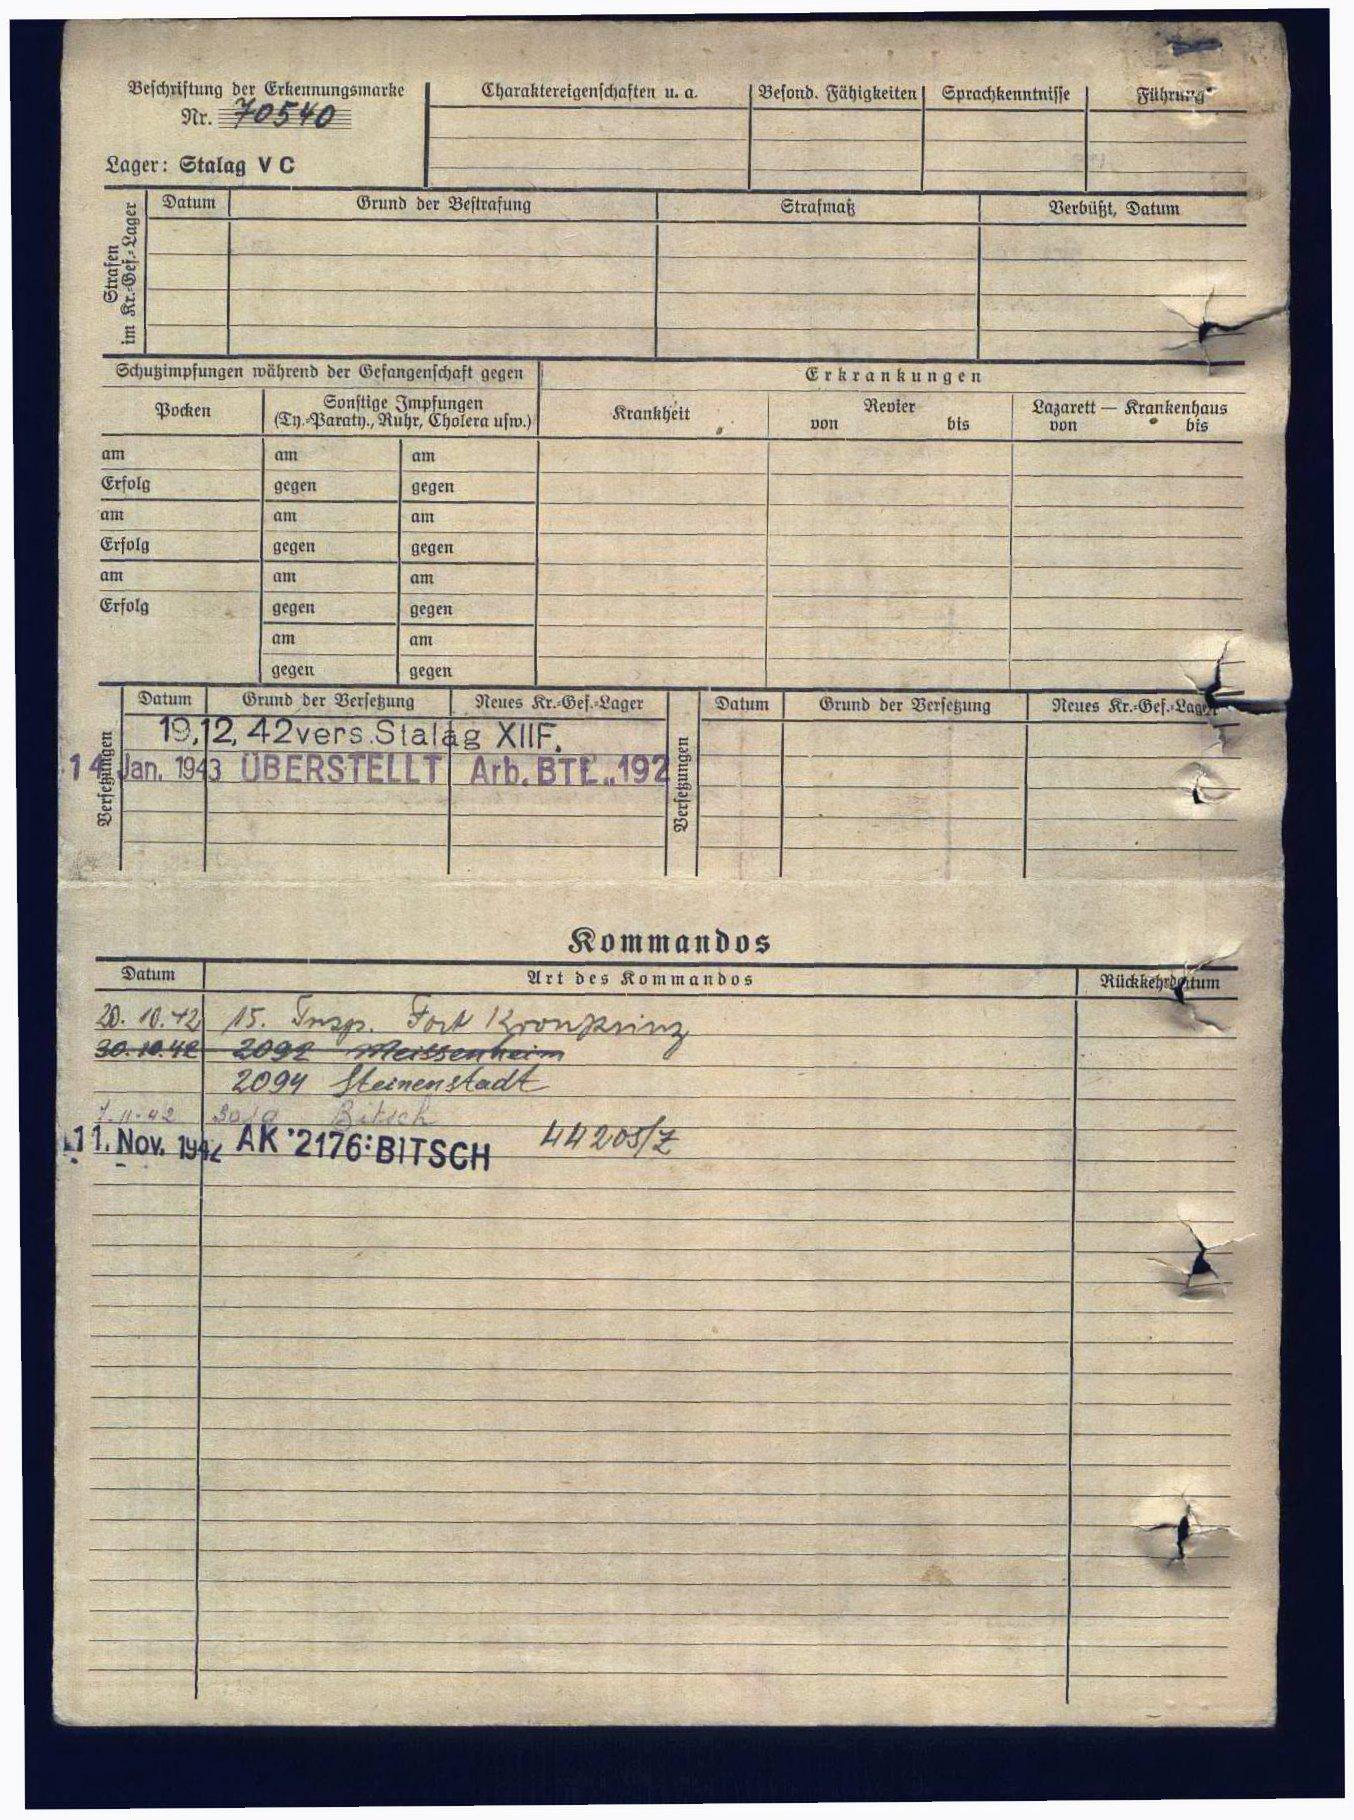 Beschriftung der Erkennungsmarke
Nr. 70540
Lager: Stalag V C
Charaktereigenschaften u. a.
Besond. Fähigkeiten
Sprachkenntnisse
Führung
Strafen
im Kr.-Gef.-Lager
Datum
Grund der Bestrafung
Strafmaß
Verbüßt, Datum
Schutzimpfungen während der Gefangenschaft gegen
Erkrankungen
Pocken
Sonstige Impfungen
(Ty.-Paraty., Ruhr, Cholera usw.)
Krankheit
Revier
von bis
Lazarett — Krankenhaus
von bis
am am am
Erfolg gegen gegen
am am am
Erfolg gegen gegen
am am am
Erfolg gegen gegen
am am
gegen gegen
Versetzungen
Datum Grund der Versetzung Neues Kr.-Gef.-Lager
19.12.42 vers. Stalag XIIF.
14. Jan. 1943 ÜBERSTELLT Arb. BTL. 192
Versetzungen
Datum Grund der Versetzung Neues Kr.-Gef.-Lager
Kommandos
Datum Art des Kommandos Rückkehrdatum
20.10.42 15. Trsp. Fort Kronprinz
30.10.42 2092 Meissenheim
2094 Steinenstadt
7.11.42 Bitsch
11. Nov. 1942 AK 2176: BITSCH 44205/Z